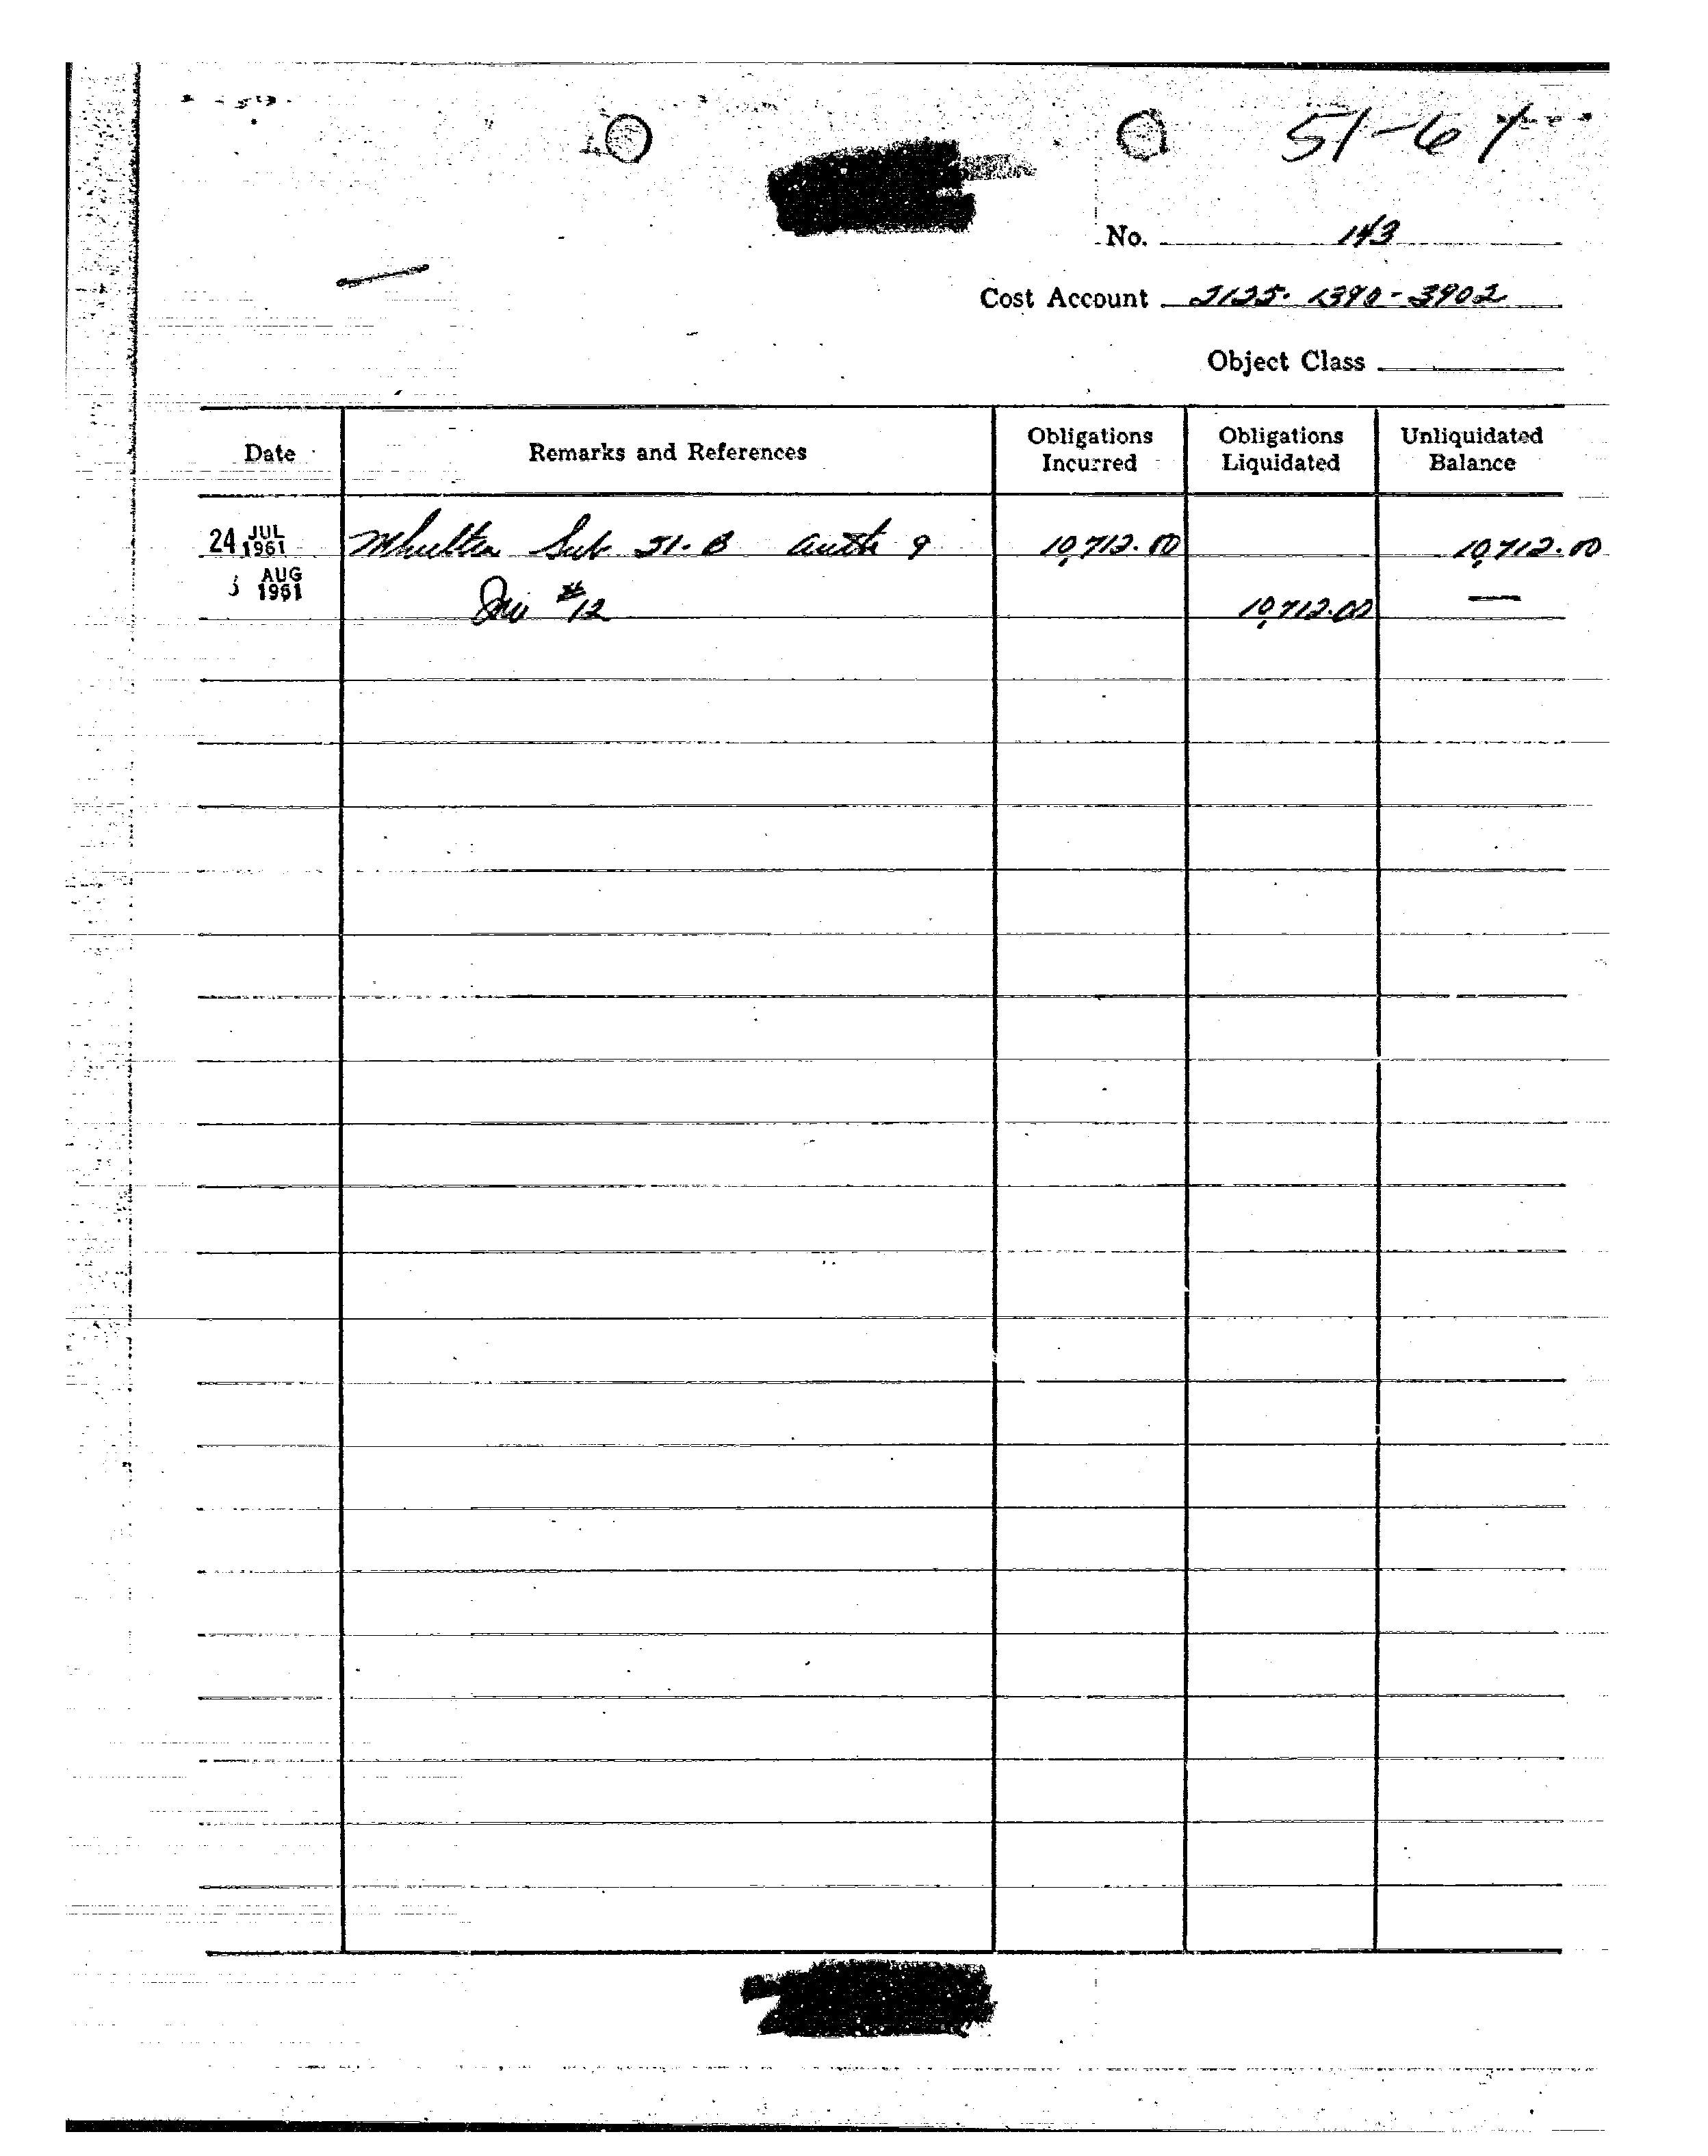 51-61
No. 143
Cost Account 2125-1390-3902
Object Class
Date Remarks and References Obligations Incurred Obligations Liquidated Unliquidated Balance
24 JUL 1961 Mhulton Sub 51-B auth 9 10,712.00 10,712.00
AUG 1961 Inv #12 10,712.00 —